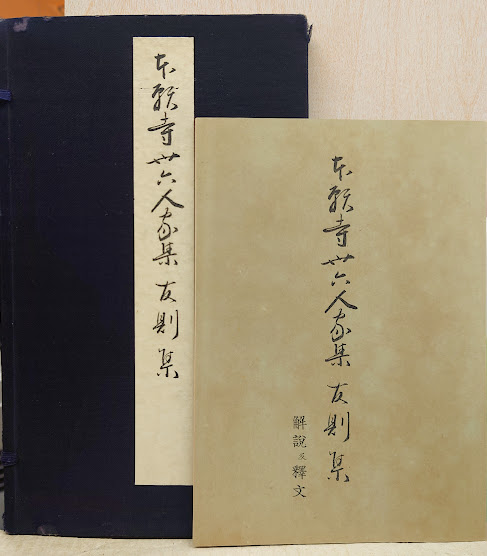 本願寺卅六人家集 友則集
本願寺卅六人家集 友則集
解説及釋文